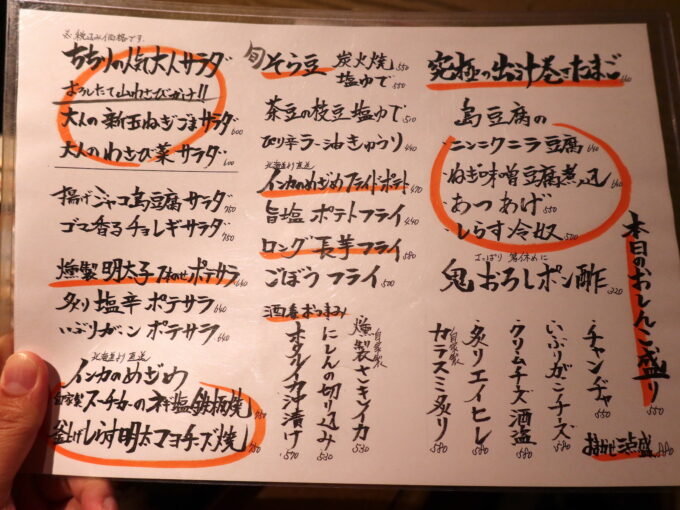 税込み価格です。
ちちりの人気大人サラダ
おろしたて山わさびがけ!!
大人の新玉ねぎごまサラダ 600
大人のわさび菜サラダ 600
揚げジャコ島豆腐サラダ 750
ゴマ香るチョレギサラダ 750
燻製明太子のポテサラ 640
炙り塩辛ポテサラ 640
いぶりガッコポテサラ 640
北海道より直送
インカのめざめ
自家製スーチカーの鉄板焼 780
釜上げしらす明太マヨチーズ焼 780
旬そら豆 炭火焼 550
塩ゆで 550
茶豆の枝豆塩ゆで 510
ぴり辛ラー油きゅうり 440
北海道より直送
インカのめざめフライドポテト 470
旨塩ポテトフライ 440
ロング長芋フライ 580
ごぼうフライ 500
酒毒おつまみ
自家製
燻製さきイカ 530
にしんの切り込み 530
ホタルイカ沖漬け 570
究極の出汁巻きたまご 660
島豆腐の
・ニンニクニラ豆腐 640
・ねぎ味噌豆腐煮込 640
・あつあげ 550
・しらす冷奴 500
さっぱり 箸休めに
鬼おろしポン酢 220
本日のおしんこ盛り 550
チャンヂャ 550
いぶりガッコチーズ 580
クリームチーズ酒盗 580
炙りエイヒレ 580
自家製
カラスミ炙り 580
三点盛 880